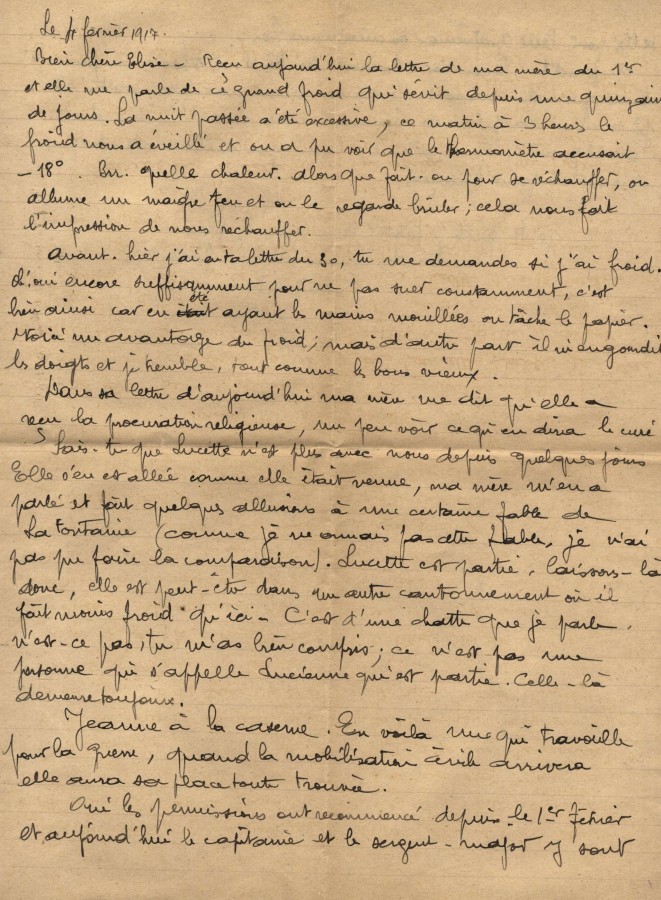 Le 4 février 1917.
Bien chère Elise – Reçu aujourd'hui la lettre de ma mère du 1er
et elle me parle de ce grand froid qui sévit depuis une quinzaine
de jours. La nuit passée a été excessive, ce matin à 3 heures le
froid nous a éveillé et on a pu voir que le thermomètre accusait
– 18°. Brr. quelle chaleur. alors que fait-on pour se réchauffer, on
allume un maigre feu et on le regarde brûler ; cela nous fait
l'impression de nous réchauffer.
Avant-hier j'ai eu ta lettre du 30, tu me demandes si j'ai froid.
oui encore suffisamment pour ne pas suer constamment, c'est
bien ainsi car en était été ayant les mains mouillées on tâche le papier.
Voilà un avantage du froid ; mais d'autre part il m'engourdit
les doigts et je tremble, tout comme les bons vieux.
Dans sa lettre d'aujourd'hui ma mère me dit qu'elle a
reçu la procuration religieuse, un peu voir ce qu'en dira le curé
Sais-tu que Lucette n'est plus avec nous depuis quelques jours
Elle s'en est allée comme elle était venue, ma mère m'en a
parlé et fait quelques allusions à une certaine fable de
La Fontaine (comme je ne connais pas cette fable, je n'ai
pas pu faire la comparaison). Lucette est partie, laissons-là
donc, elle est peut-être dans un autre cantonnement où il
fait moins froid qu'ici – C'est d'une chatte que je parle,
n'est-ce pas, tu m'as bien compris ; ce n'est pas une
personne qui s'appelle Lucienne qu'est partie. Celle-là
demeure toujours.
Jeanne à la caserne. En voilà une qui travaille
pour la guerre, quand la mobilisation civile arrivera
elle aura sa place toute trouvée.
Oui les permissions ont recommencé depuis le 1er février
et aujourd'hui le capitaine et le sergent-major y sont